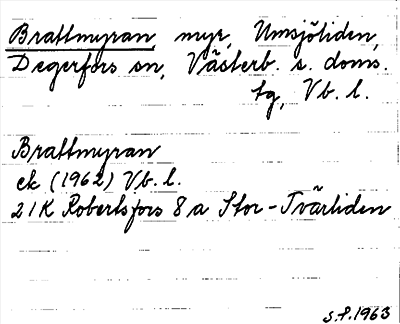 Brattmyran, myr, Umsjöliden,
Degerfors sn, Västerb. s. doms.
tg, Vb. l.
Brattmyran
ek (1962) Vb. l.
21K Robertsfors 8 a Stor-Tvärliden
S.P. 1963